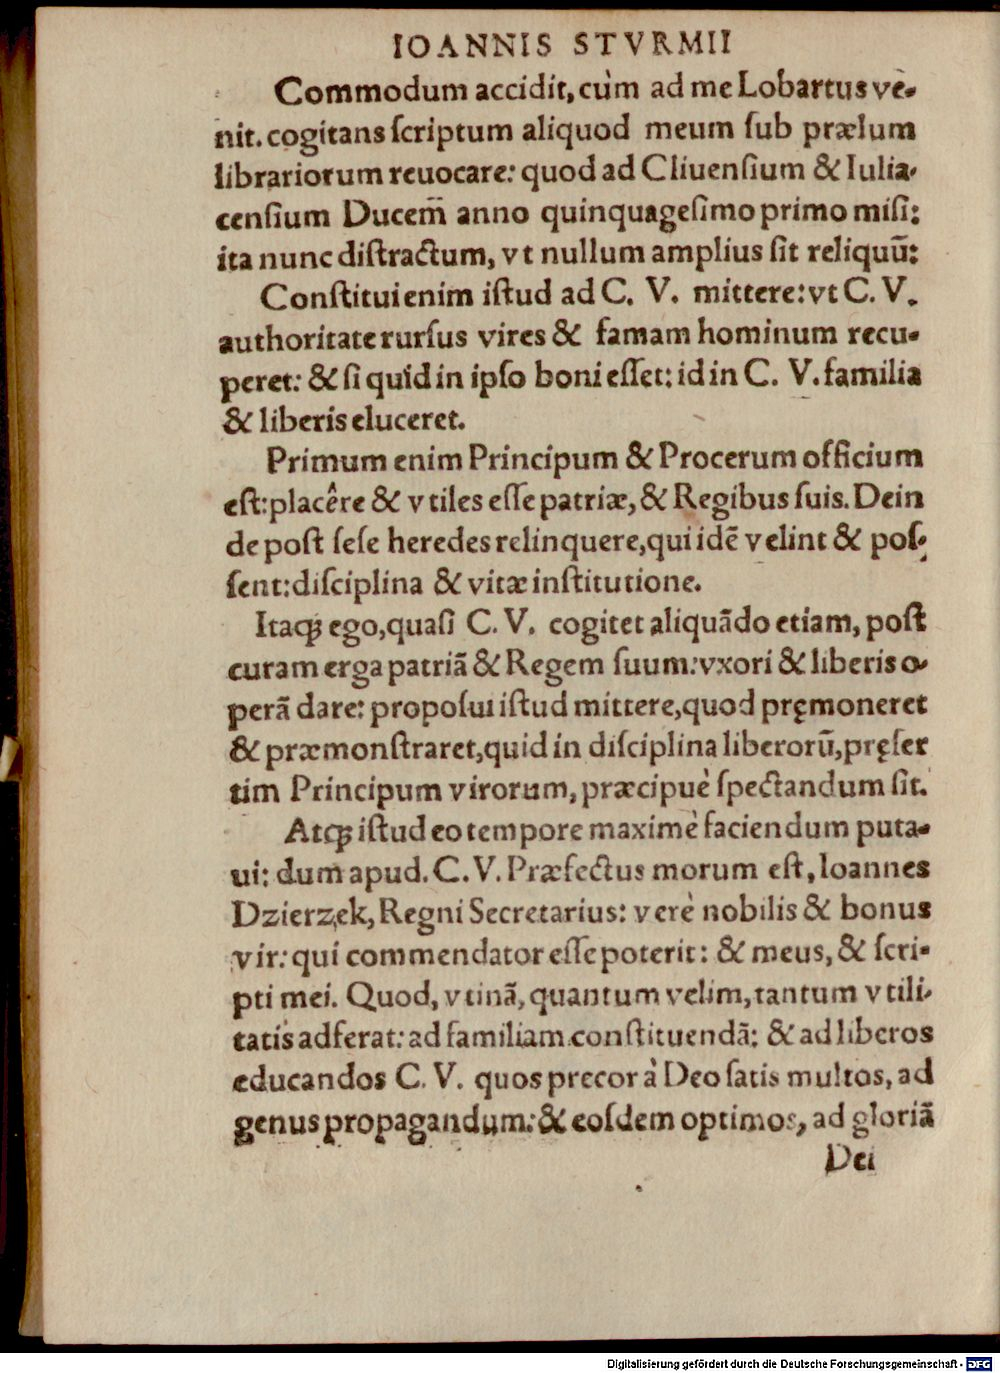 IOANNIS STVRMII
Commodum accidit, cùm ad me Lobartus ve-
nit. cogitans ſcriptum aliquod meum ſub prælum
librariorum reuocare: quod ad Cliuenſium & Iulia-
cenſium Ducem̃ anno quinquageſimo primo miſi:
ita nunc diſtractum, vt nullum amplius ſit reliquũ:
Conſtitui enim iſtud ad C. V. mittere: vt C. V.
authoritate rurſus vires & famam hominum recu-
peret: & ſi quid in ipſo boni eſſet: id in C. V. familia
& liberis eluceret.
Primum enim Principum & Procerum officium
eſt: placêre & vtiles eſſe patriæ, & Regibus ſuis. Dein
de poſt ſeſe heredes relinquere, qui idẽ velint & poſ-
ſent: diſciplina & vitæ inſtitutione.
Itaq́; ego, quaſi C. V. cogitet aliquãdo etiam, poſt
curam erga patriã & Regem ſuum: vxori & liberis o-
perã dare: propoſui iſtud mittere, quod pręmoneret
& præmonſtraret, quid in diſciplina liberorũ, pręſer
tim Principum virorum, præcipuè ſpectandum ſit.
Atq́; iſtud eo tempore maximè faciendum puta-
ui: dum apud. C. V. Præfectus morum eſt, Ioannes
Dzierzek, Regni Secretarius: verè nobilis & bonus
vir: qui commendator eſſe poterit: & meus, & ſcri-
pti mei. Quod, vtinã, quantum velim, tantum vtili-
tatis adferat: ad familiam conſtituendã: & ad liberos
educandos C. V. quos precor à Deo ſatis multos, ad
genus propagandum: & eoſdem optimos, ad gloriã
Dei
Digitalisierung gefördert durch die Deutsche Forschungsgemeinschaft - DFG